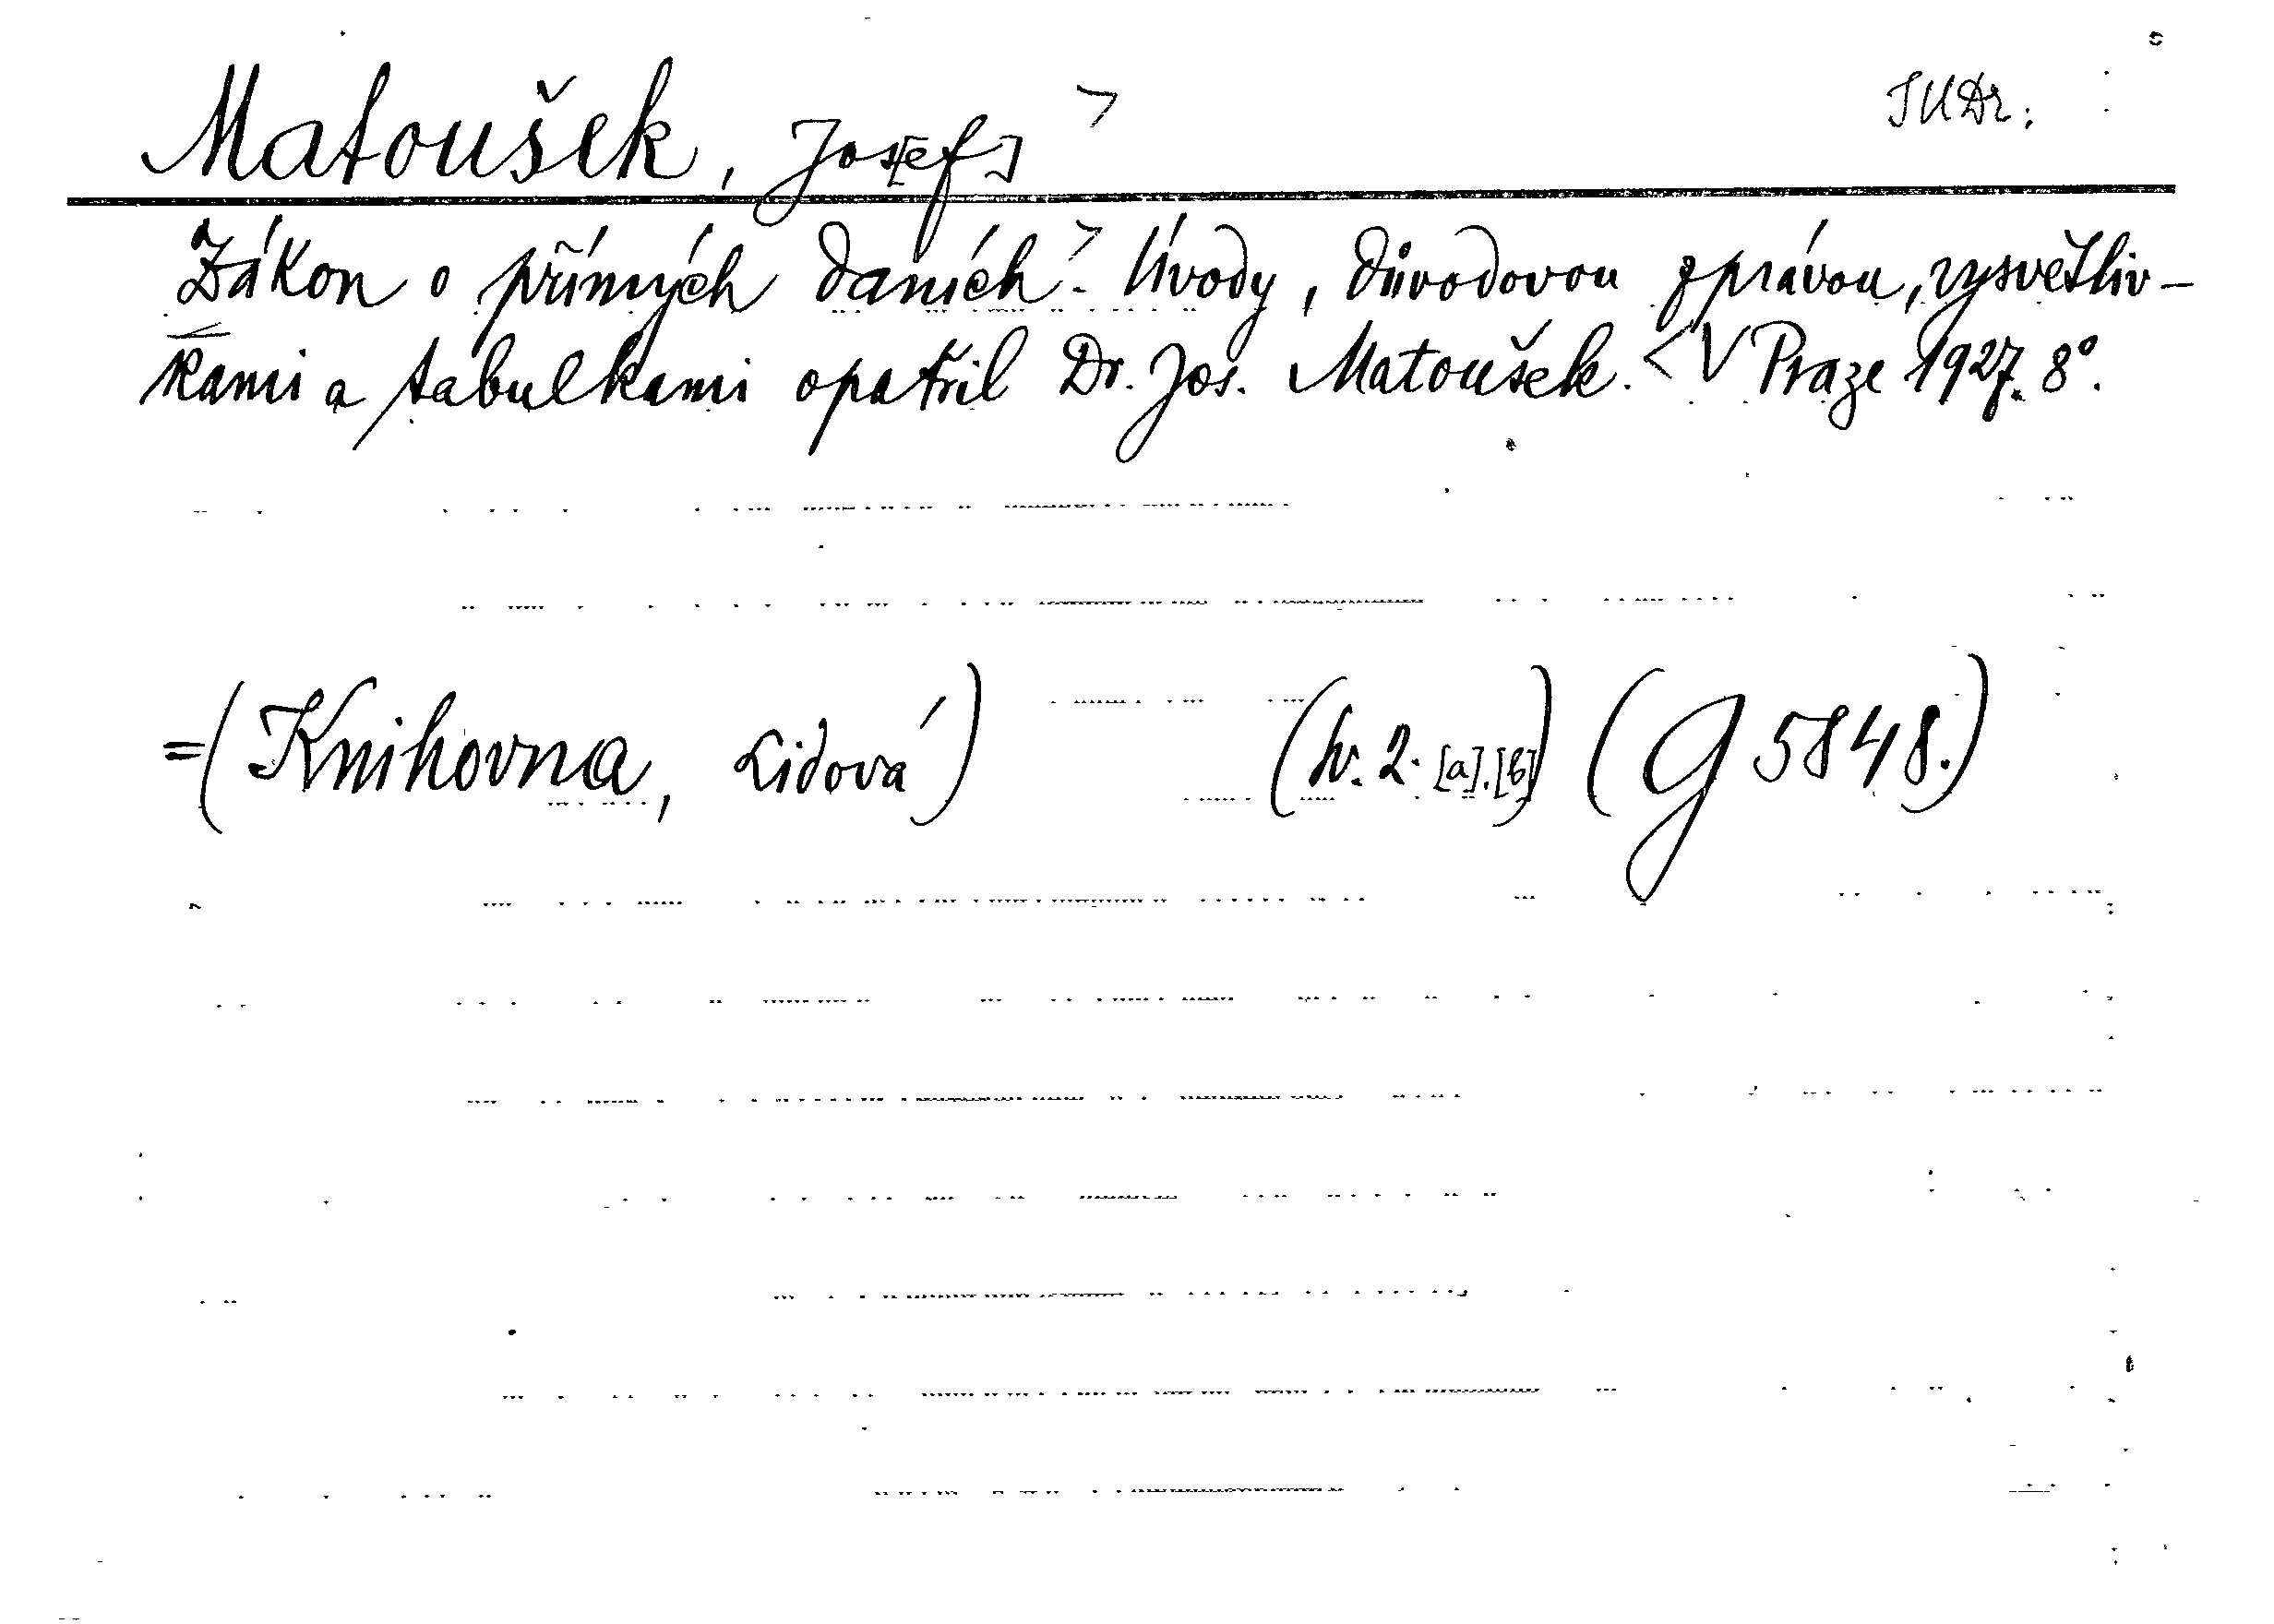 Matoušek, Jos[ef] > JUDr.
Zákon o přímých daních.> Úvody, důvodovou zprávou, vysvětliv-
kami a tabulkami opatřil Dr. Jos. Matoušek. < V Praze 1927. 8°.
=(Knihovna, Lidová) (sv. 2. [a].[b]) (G 5848.)